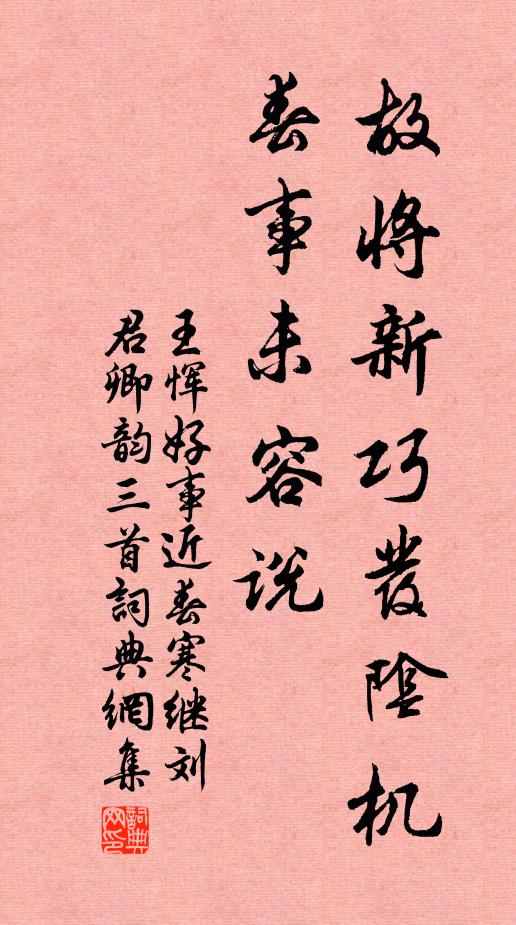 故将新巧發陰机
春事未容说
王恽好事近春寒继刘
君卿韵三首詞典網集
詞典网印